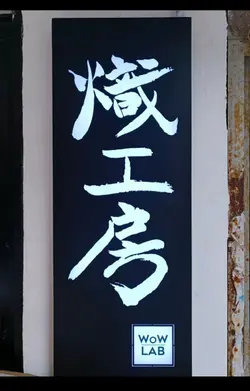 熾工房
WoW
LAB